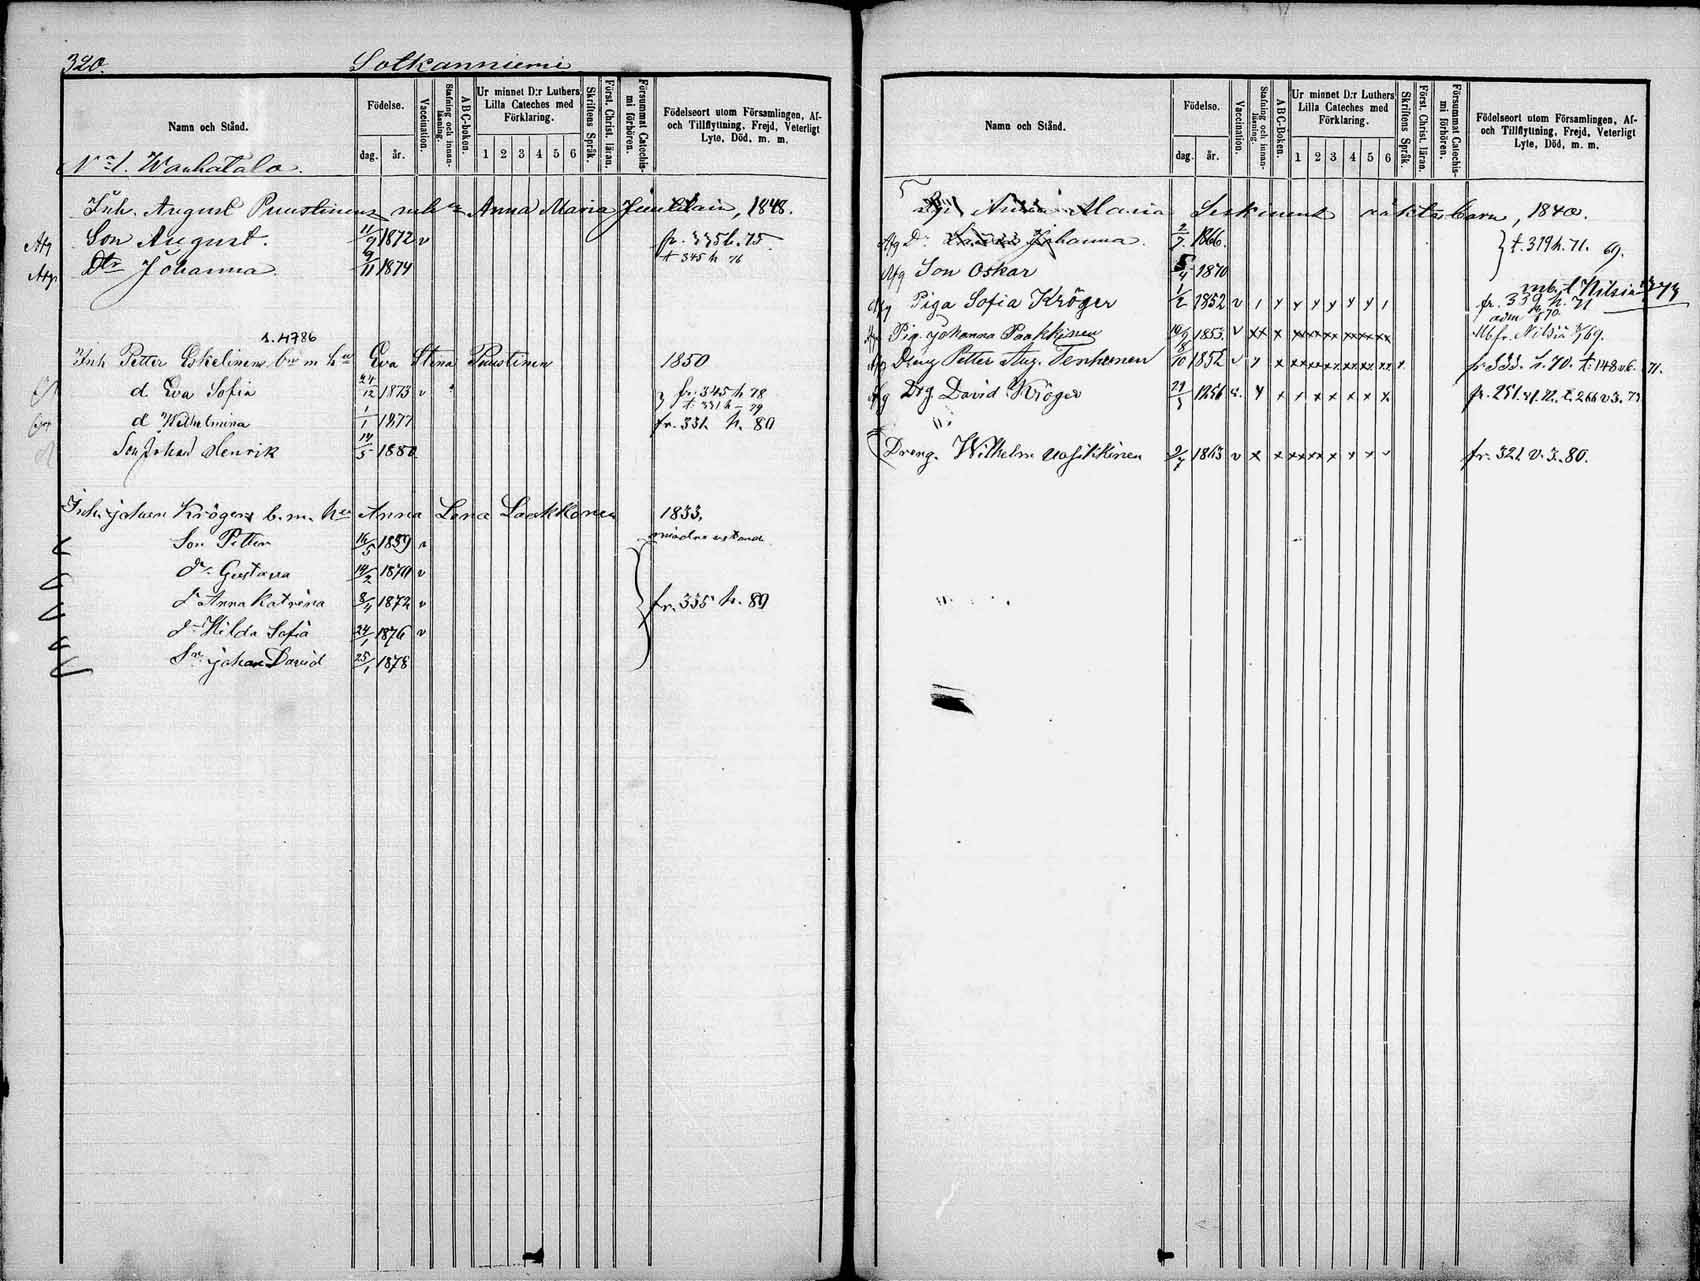 320. Sotkanniemi
Namn och Stånd.
Födelse.
dag. år.
Vaccination.
Stafning och innan-läsning.
ABC-boken.
Ur minnet D:r Luthers Lilla Cateches med Förklaring.
1 2 3 4 5 6
Skriftens Språk.
Först. Christ. läran.
Försummat Catechis-mi förhören.
Födelseort utom Församlingen, Af- och Tillflyttning, Frejd, Veterligt Lyte, Död, m. m.
No 1. Wanhatalo.
Inh. August Puustinens Anna Maria 1848.
Afg Son August. 11/9 1872 v fr. 335 h. 75
Afg. Dtr Johanna 9/11 1874 t 345 h 76
s. 4786
Inh Petter Eskelinens m hu Eva Stina Puustinen 1850
d Eva Sofia 24/12 1873 v fr. 345 h 78
t. 331 h - 79
d Wilhelmina 1/1 1877 fr. 331 h. 80
Son Johan Henrik 14/5 1880
Inh. Johan Krögers b. m. hu Anna Lena Laakkonen 1833.
Son Petter 16/5 1859 v
dr. Gustava 14/2 1870 v
dr Anna Katrina 8/4 1872 v fr. 335 h. 80
dr Hilda Sofia 24/1 1876 v
Sn. Johan David 25/1 1878
Namn och Stånd.
Födelse.
dag. år.
Vaccination.
Stafning och innan-läsning.
ABC-Boken.
Ur minnet D:r Luthers Lilla Cateches med Förklaring.
1 2 3 4 5 6
Skriftens Språk.
Först. Christ. läran.
Försummat Catechis-mi förhören.
Födelseort utom Församlingen, Af- och Tillflyttning, Frejd, Veterligt Lyte, Död, m. m.
Maria oäkta barn, 1840.
Afg Dr. Johanna. 2/7 1866. t. 319 h. 71. 69.
Afg Son Oskar 5/4 1870
mb. t Nilsiä 73
Afg Piga Sofia Kröger 1/2 1852 v fr. 339 h. 71
Pig. Johanna Paakkinen 1853. v Mbfr. Nilsiä /69.
Afg Dreng Petter Aug. 8/10 1852 v fr 333. h. 70. t: 148 v 6. 71.
Afg Drg David Kröger 29/3 1856 fr. 251. t. 266 v 3. 73
Dreng. Wilhelm 2/7 1863 v fr. 321 v. 3. 80.